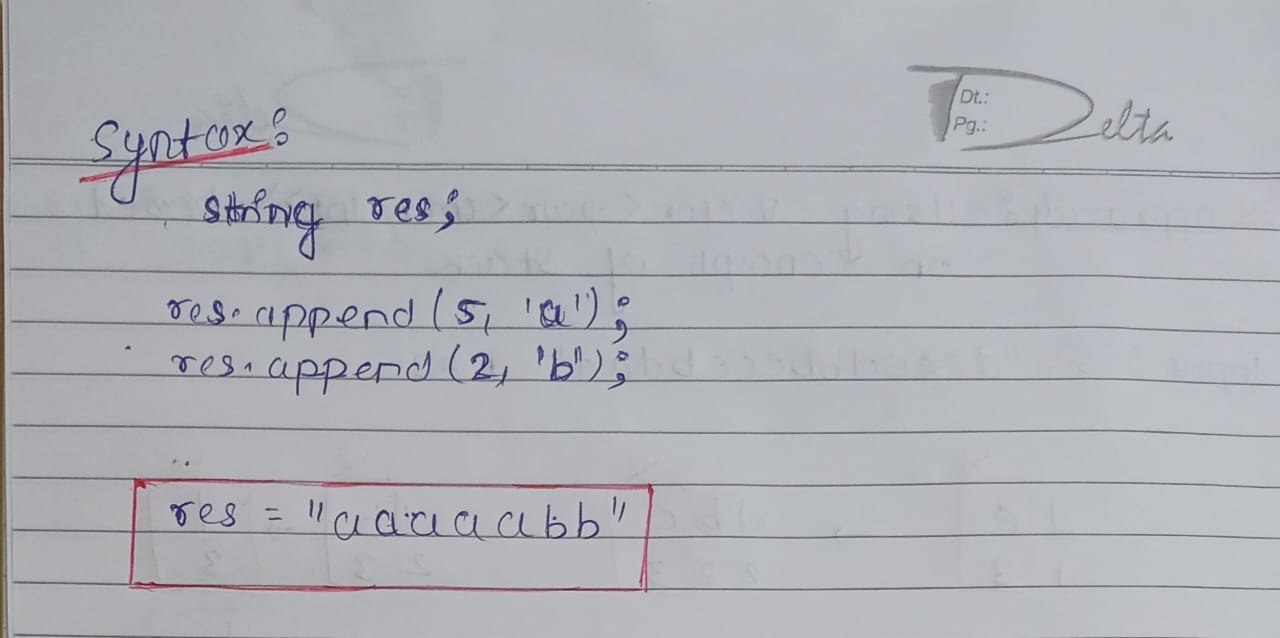 Dt.:
Pg.:
Delta
Syntax:
string res;
res.append(5, 'a');
res.append(2, 'b');
res = "aaaaabb"